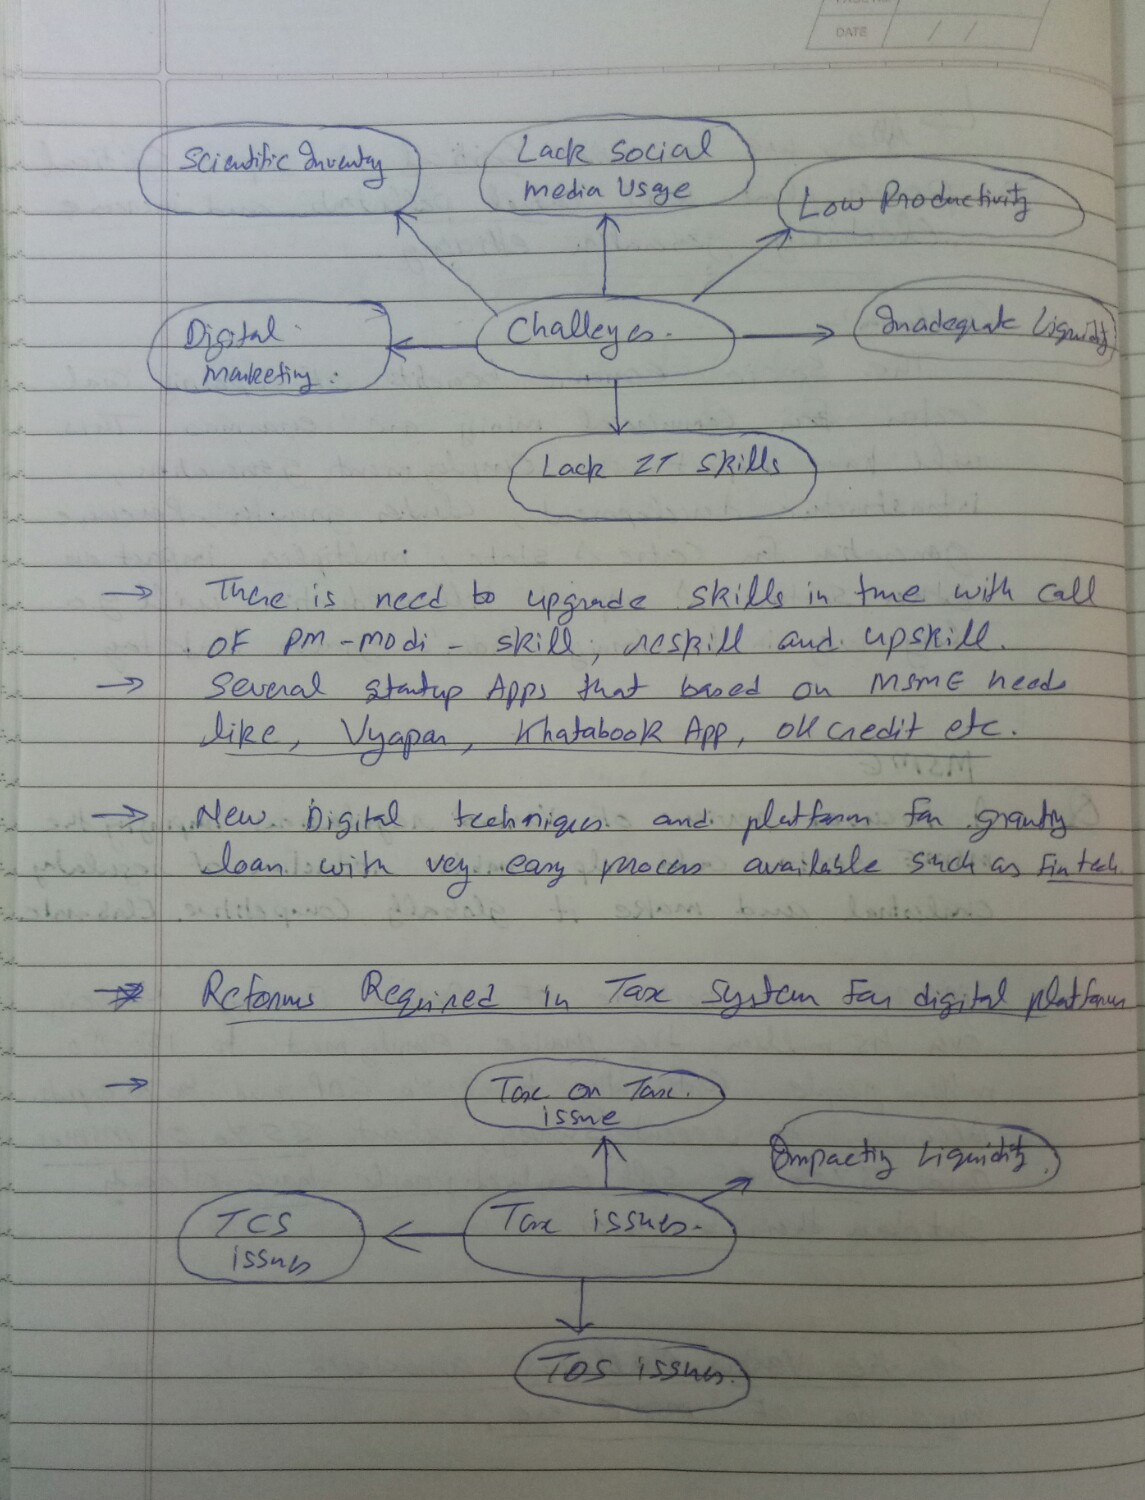 DATE / /
Scientific Inventory
Lack Social
media Usage
Low Productivity
Digital
marketing.
Challeges.
Inadequate Liquidity
Lack IT skills
→ There is need to upgrade skills in tune with call
of PM-modi - skill, reskill and upskill.
→ Several startup Apps that based on MSME needs
like, Vyapar, Khatabook App, OK credit etc.
→ New Digital techniques and platform for granting
loan with very easy process available such as Fintech
→ Reforms Required in Tax System for digital platforms
→ Tax on Tax.
issue
Impacting Liquidity.
TCS
issues
Tax issues.
TDS issues.